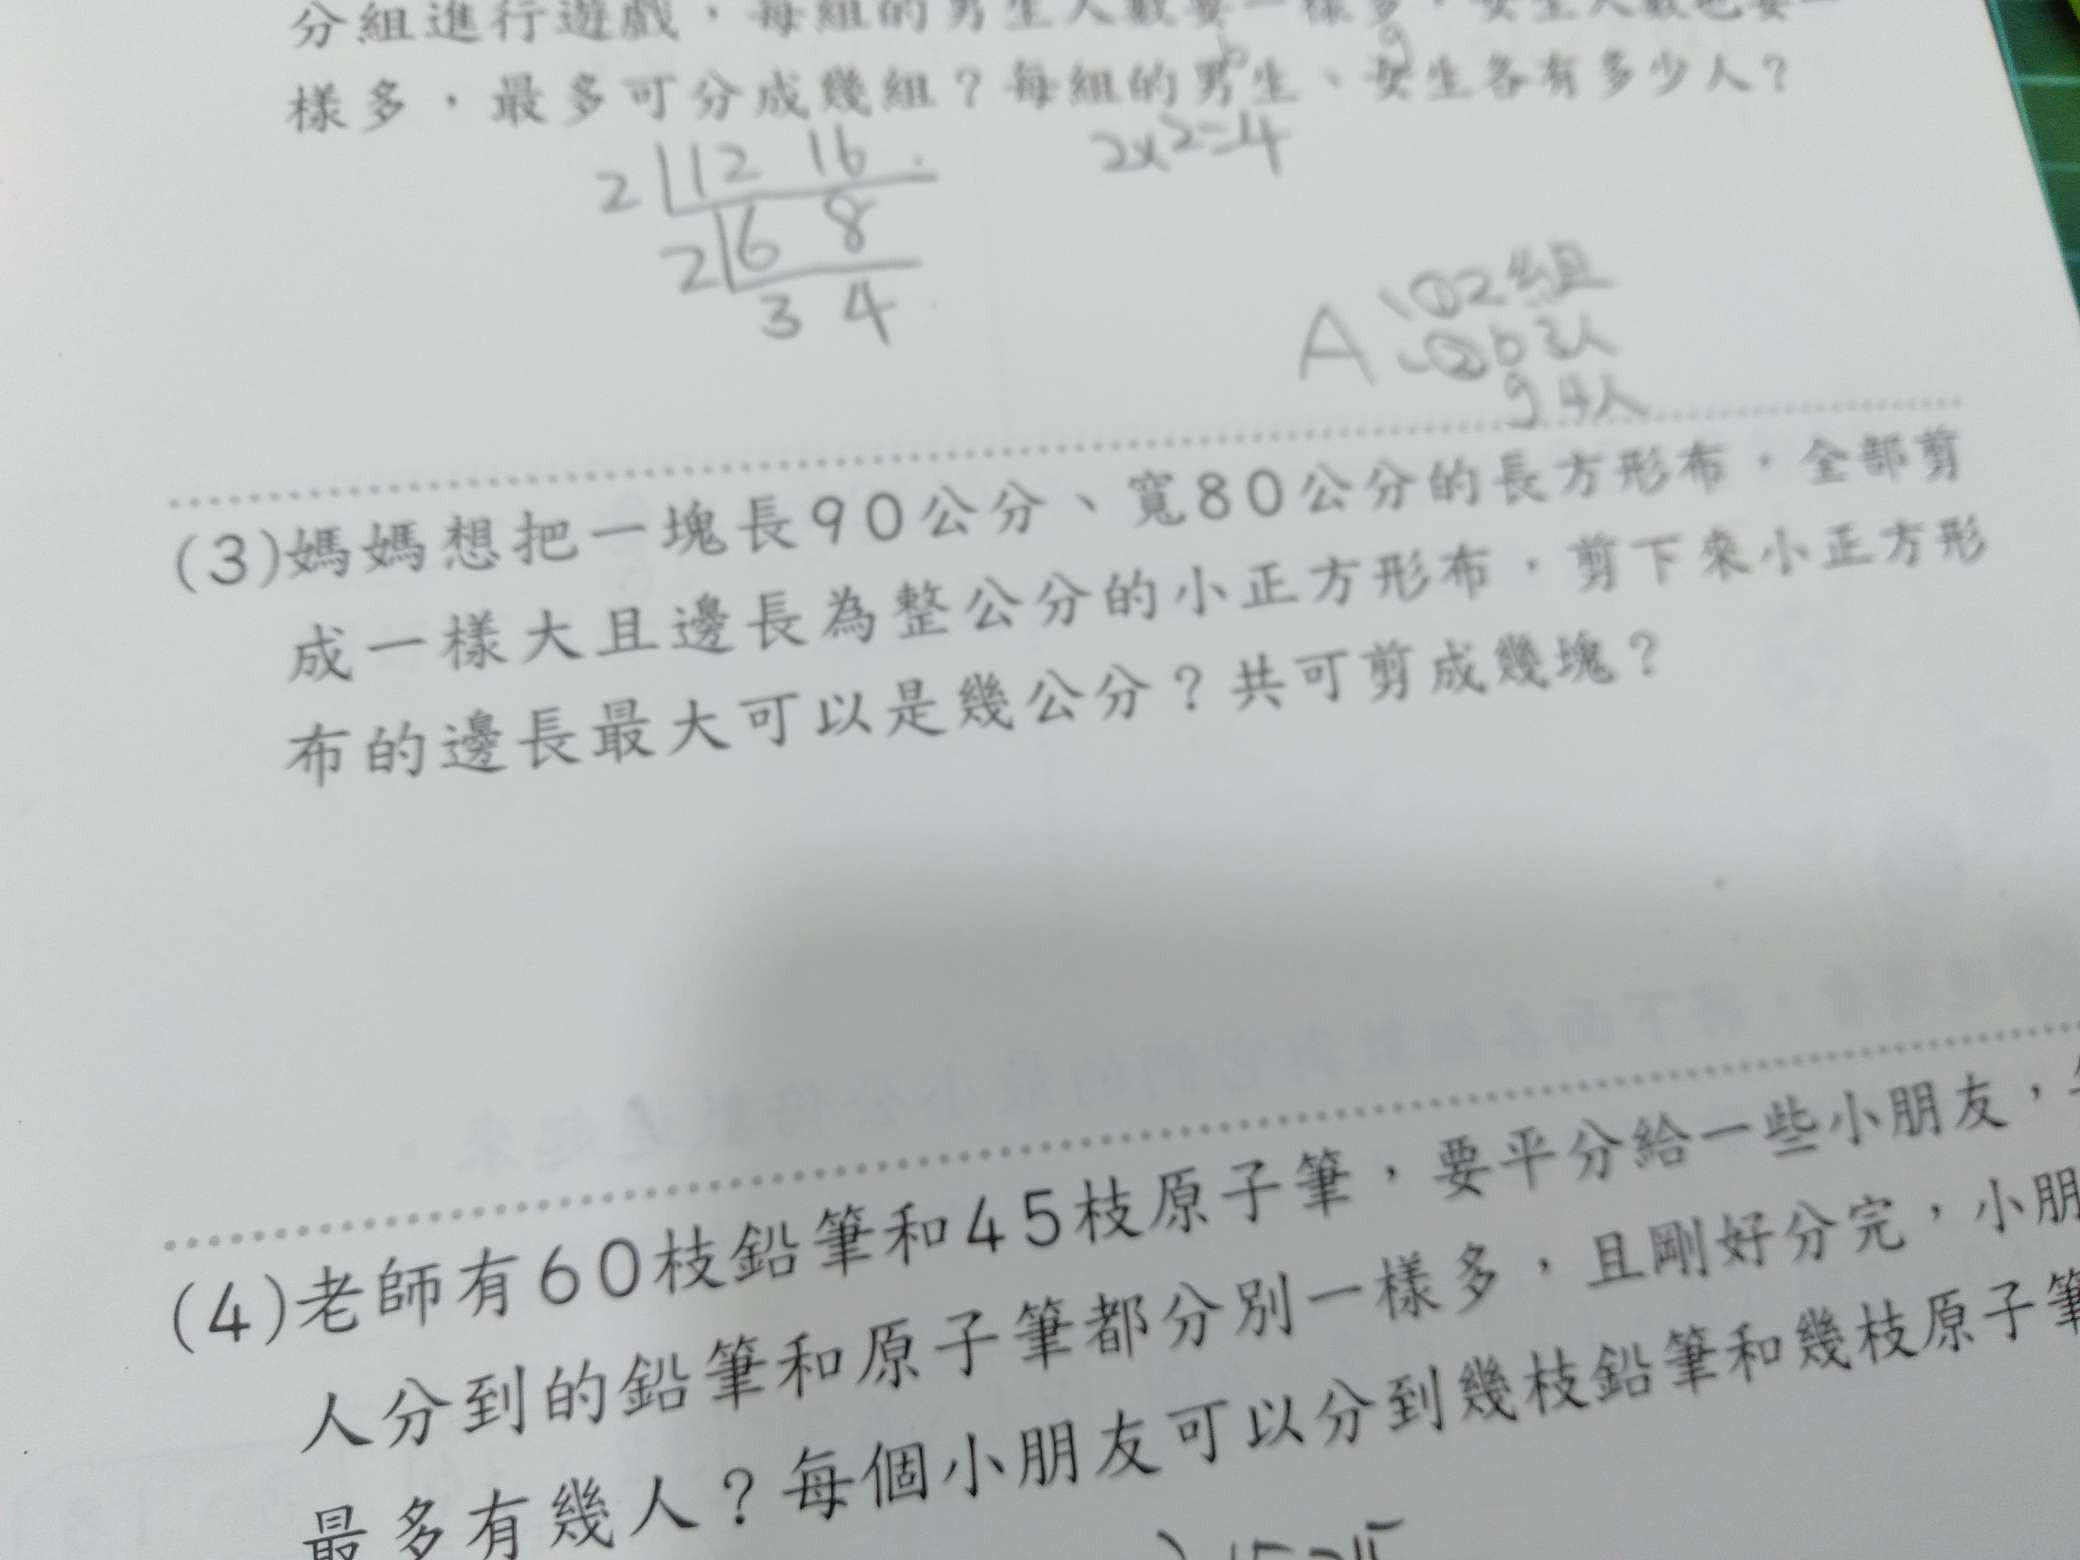 分組進行遊戲，每組的男生人數要一樣多，女生人數也要一
樣多，最多可分成幾組？每組的男生、女生各有多少人？
b g
2 12 16
2×2=4
2 6 8
3 4
A ①2組
②b 3人
g 4人
(3)媽媽想把一塊長90公分、寬80公分的長方形布，全部剪
成一樣大且邊長為整公分的小正方形布，剪下來小正方形
布的邊長最大可以是幾公分？共可剪成幾塊？
(4)老師有60枝鉛筆和45枝原子筆，要平分給一些小朋友，
人分到的鉛筆和原子筆都分別一樣多，且剛好分完，小朋
最多有幾人？每個小朋友可以分到幾枝鉛筆和幾枝原子筆